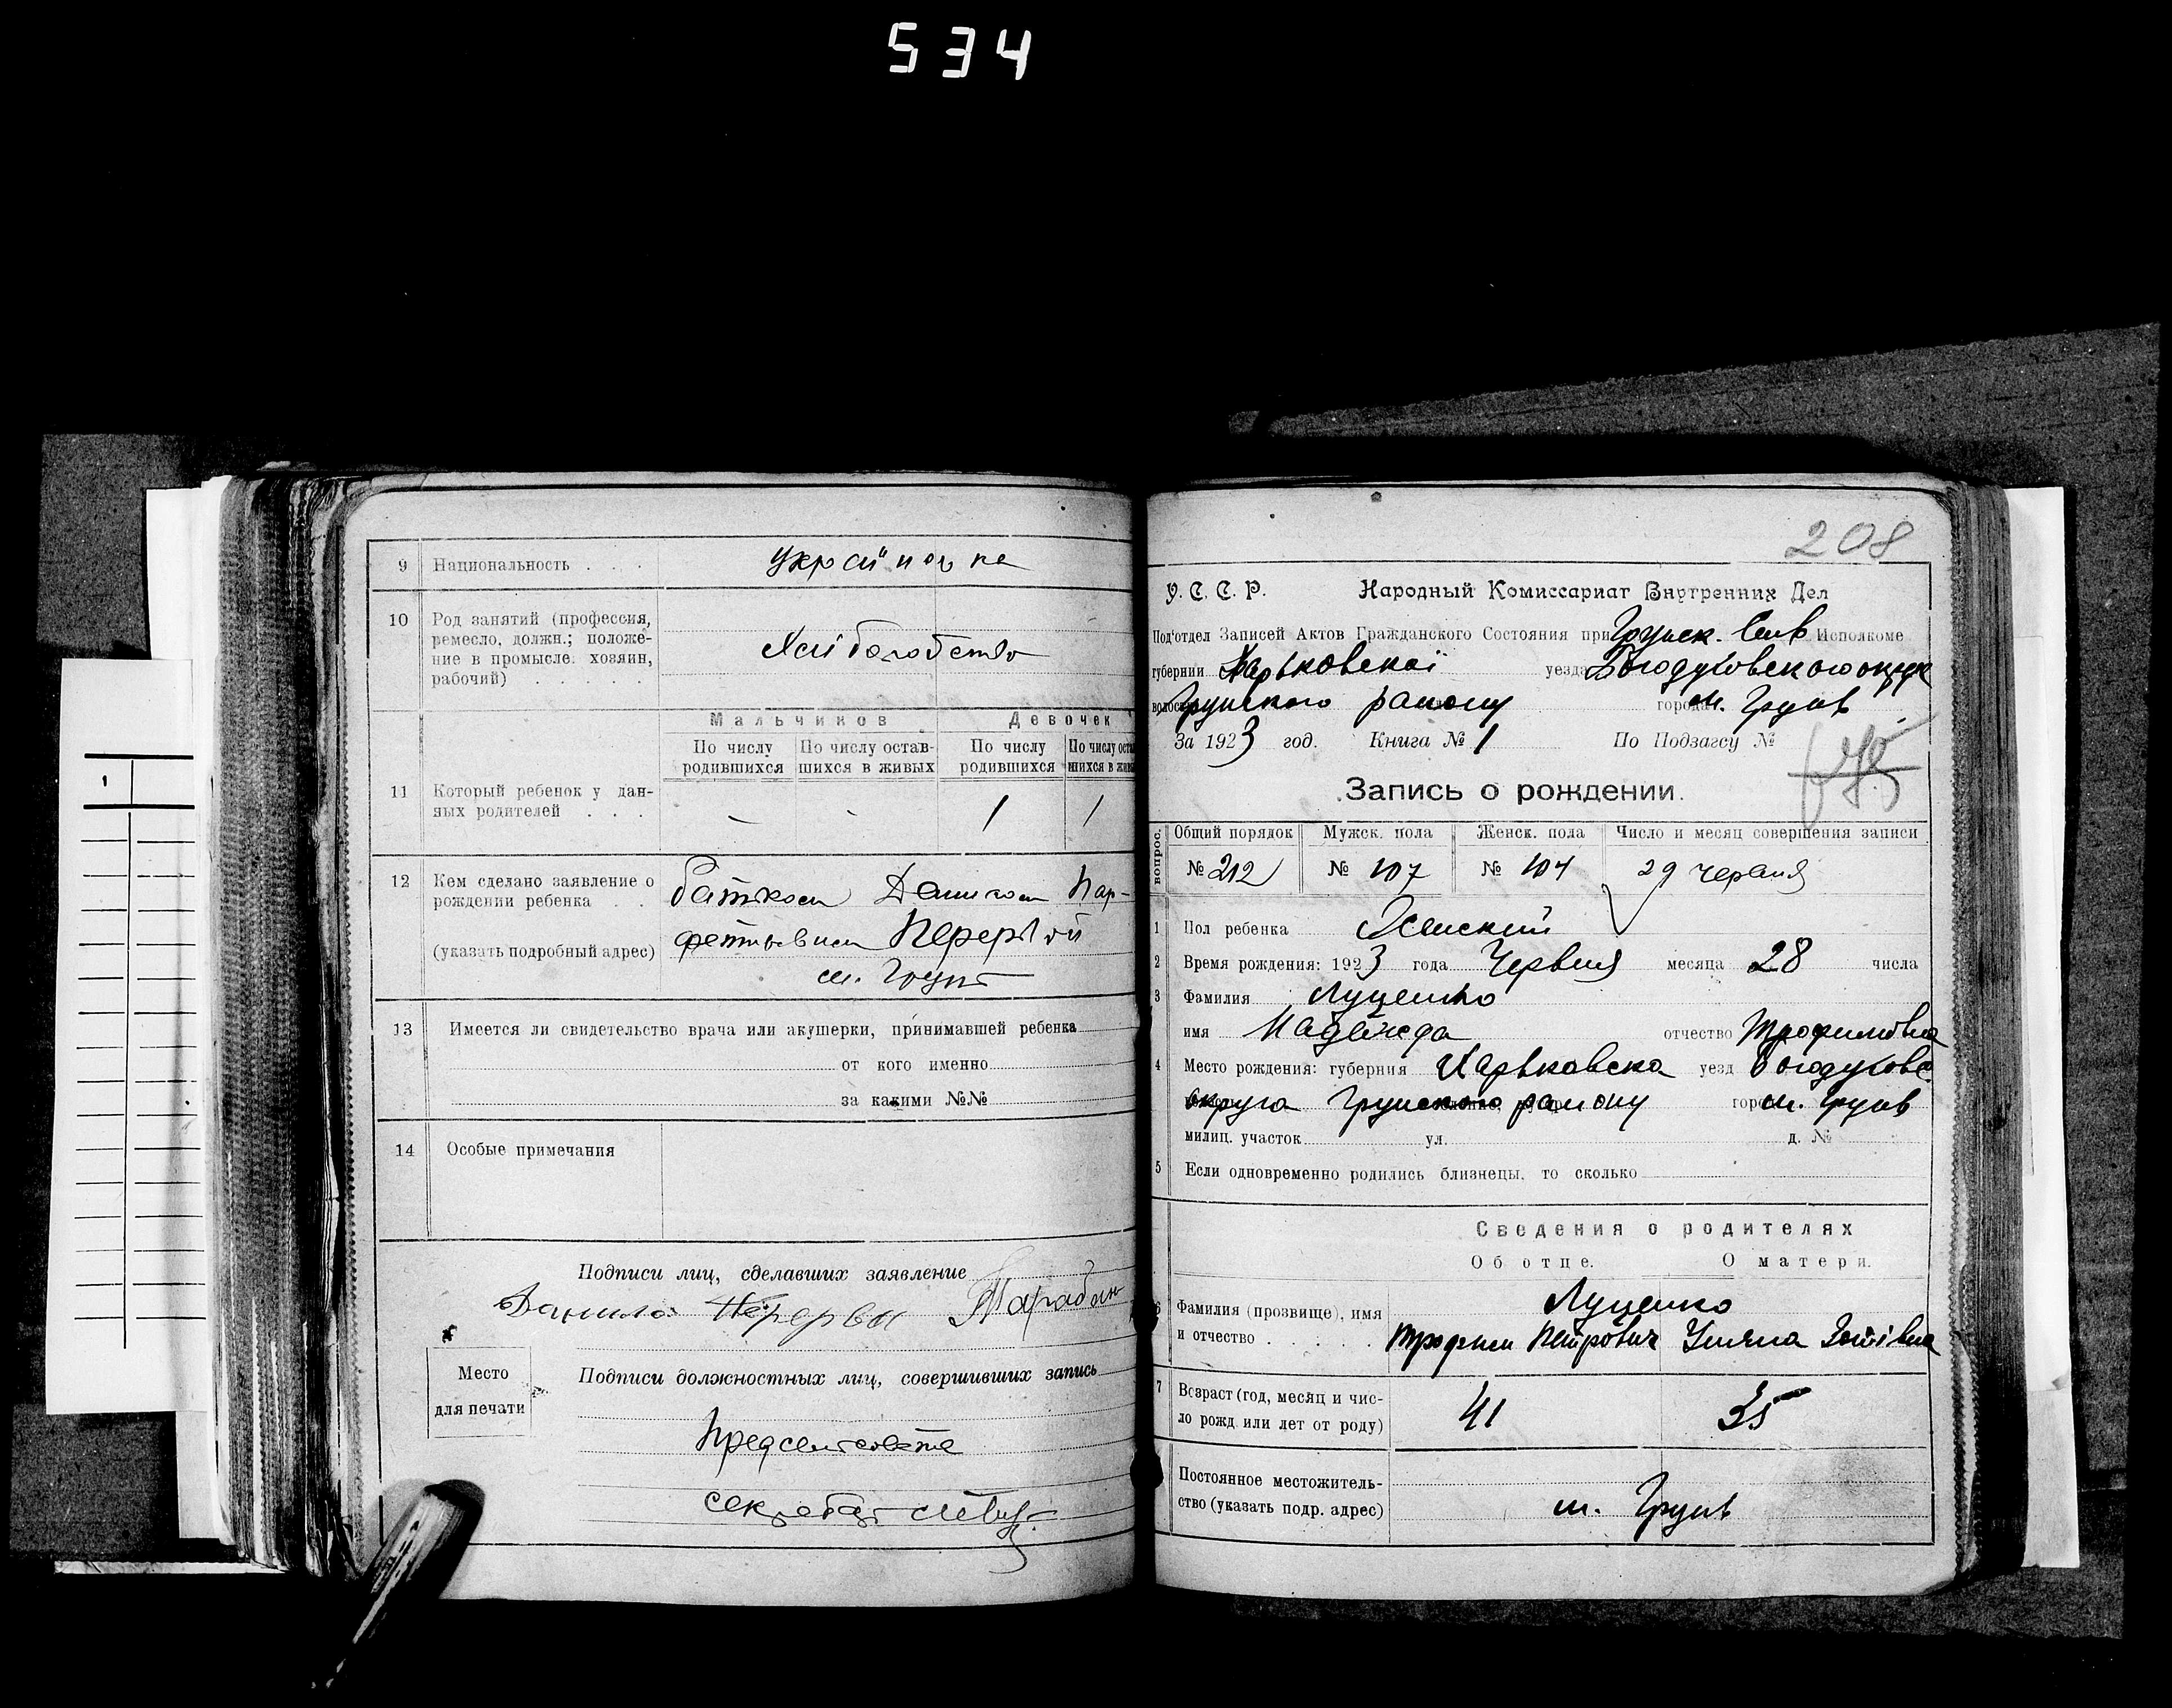 534
9 Национальность . . . українська
10 Род занятий (профессия,
ремесло, должн.; положе-
ние в промысле: хозяин,
рабочий) . . . . .
Хліборобство
Мальчиков Девочек
По числу родившихся По числу остав-шихся в живых По числу родившихся По числу оста шихся в живы
11 Который ребенок у дан-
ных родителей . . . - - 1 1
12 Кем сделано заявление о
рождении ребенка . . батьком Данилом Пар-
(указать подробный адрес) фентьевим Перервой
м. Грунь
13 Имеется ли свидетельство врача или акушерки, принимавшей ребенка
от кого именно
за какими №№
14 Особые примечания
Подписи лиц, сделавших заявление
Данила Перерва
Место
для печати
Подписи должностных лиц, совершивших запись
Предсельсовета
секретарь
208
У. С. С. Р. Народный Комиссариат Внутренних Дел
Под'отдел Записей Актов Гражданского Состояния при Грунск. Исполкоме
губернии Харьковскої уезда Богодуховского округ
волости Грунського району города м. Грунь
За 1923 год. Книга № 1 По Подзагсу №
Запись о рождении.
вопрос. Общий порядок Мужск. пола Женск. пола Число и месяц совершения записи
№ 212 № 107 № 104 29 червня
1 Пол ребенка Женский
2 Время рождения: 1923 года Червня месяца 28 числа
3 Фамилия Луценко
имя Надежда отчество Трофимовна
4 Место рождения: губерния Харьковска уезд Богодухове
округа Грунского району город м. Грунь
милиц. участок ул. д. №
5 Если одновременно родились близнецы, то сколько
Сведения о родителях
Об отце. О матери.
6 Фамилия (прозвище), имя Луценко
и отчество . . . . . Трофим Петрович Уляна
7 Возраст (год, месяц и чис-
ло рожд или лет от роду) 41 35
Постоянное местожитель-
ство (указать подр. адрес) м. Грунь